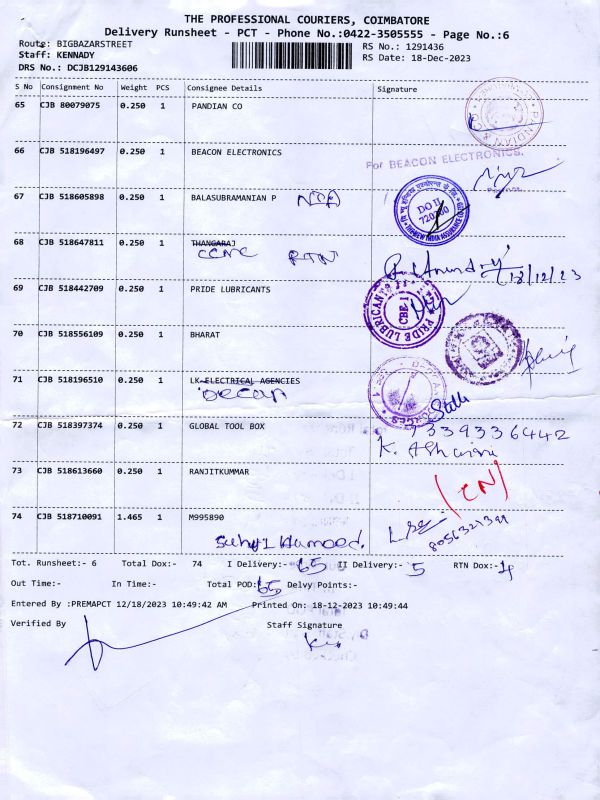 THE PROFESSIONAL COURIERS, COIMBATORE
Delivery Runsheet - PCT - Phone No.:0422-3505555 - Page No.:6
Route: BIGBAZARSTREET RS No.: 1291436
Staff: KENNADY RS Date: 18-Dec-2023
DRS No.: DCJB129143606
S No Consignment No Weight PCS Consignee Details Signature
65 CJB 80079075 0.250 1 PANDIAN CO
66 CJB 518196497 0.250 1 BEACON ELECTRONICS
For BEACON ELECTRONICS.
67 CJB 518605898 0.250 1 BALASUBRAMANIAN P
DO II
720700
68 CJB 518647811 0.250 1 THANGARAJ
RTN
18/12/23
69 CJB 518442709 0.250 1 PRIDE LUBRICANTS
PRIDE LUBRICANTS
CBE-1
70 CJB 518556109 0.250 1 BHARAT
71 CJB 518196510 0.250 1 LK ELECTRICAL AGENCIES
Deccan
72 CJB 518397374 0.250 1 GLOBAL TOOL BOX 7339336442
K. Ashwini
73 CJB 518613660 0.250 1 RANJITKUMMAR
(CN)
74 CJB 518710091 1.465 1 M995890
8056321399
Tot. Runsheet:- 6 Total Dox:- 74 I Delivery:- 65 II Delivery:- 5 RTN Dox:- 4
Out Time:- In Time:- Total POD: 65 Delvy Points:-
Entered By :PREMAPCT 12/18/2023 10:49:42 AM Printed On: 18-12-2023 10:49:44
Verified By Staff Signature